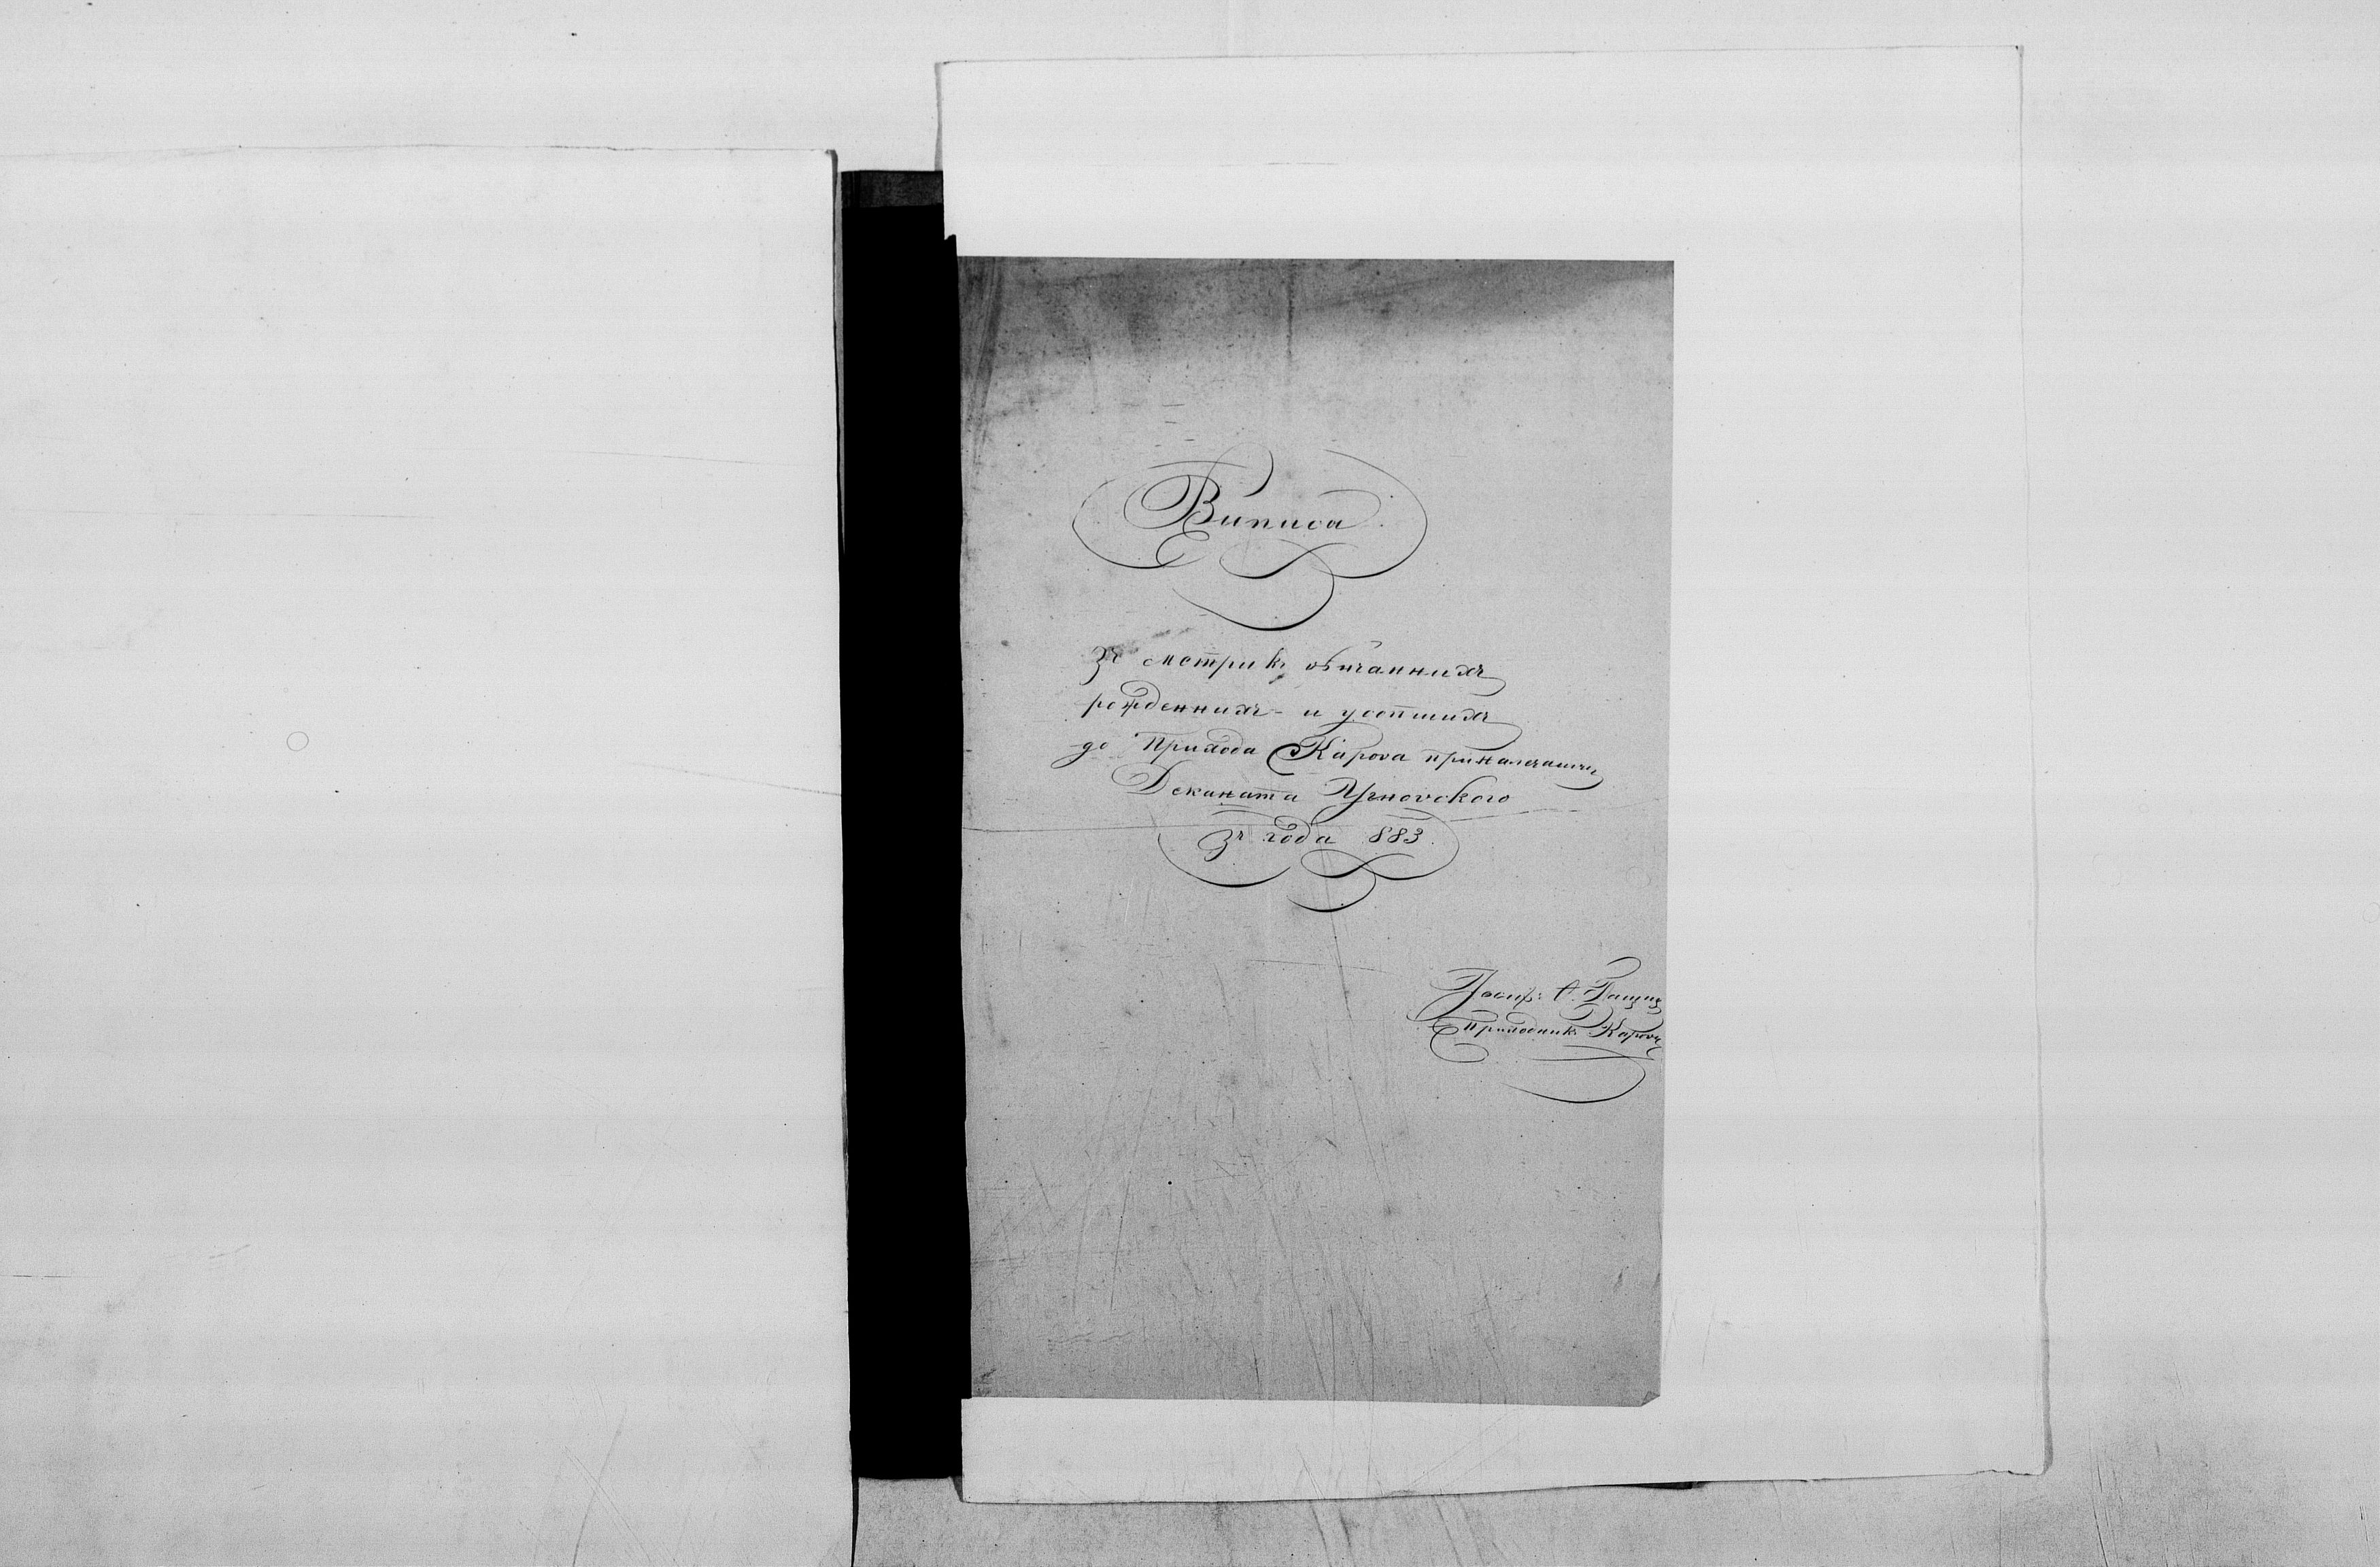 Виписа
зъ метрикъ вѣнчаннихъ
рожденнихъ - и усопшихъ
до Прихода Карова приналежащихъ
Деканата Угновского
зъ года 883.
Іосиф:
приходникъ Карова